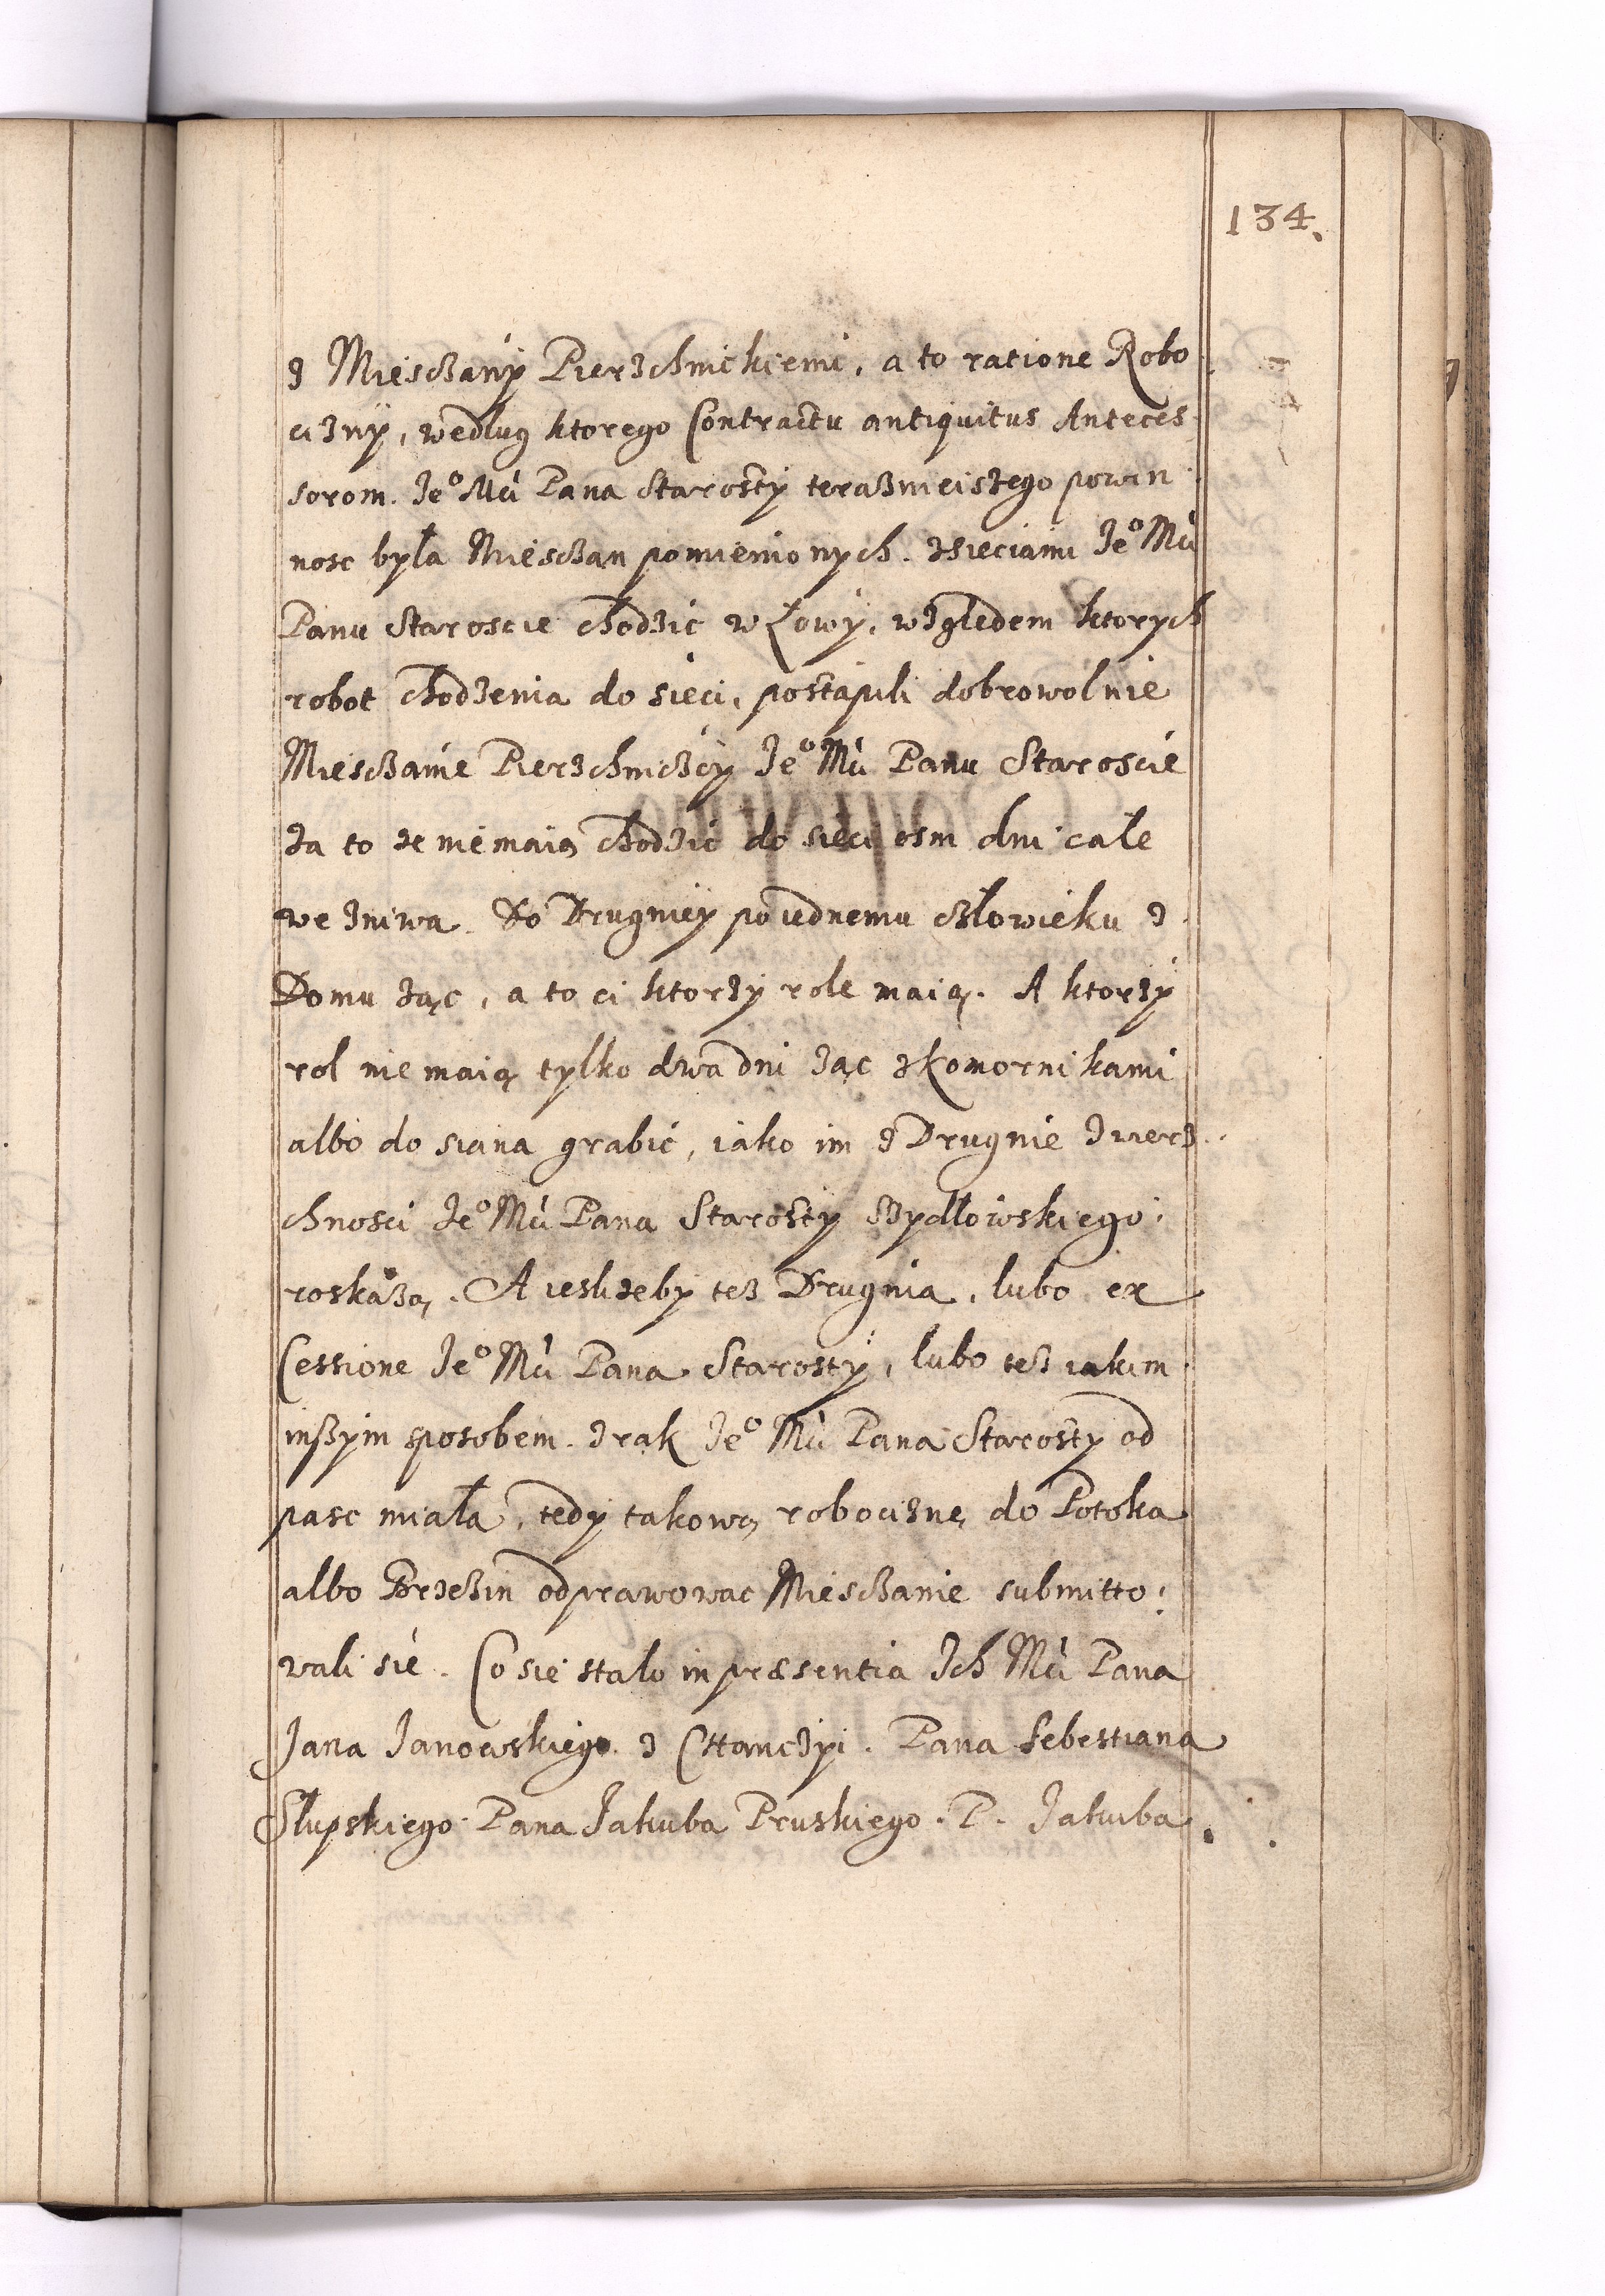 134.
z Miesczany Pierzchnickiemi, a to ratione Robo
cizny, według ktorego Contractu antiquitus Anteces
sorom Jeº Mci Pana Starosty teraznieiszego powin
nosc była Miesczan pomienionych z sieciami Jeº Mci
Panu Staroscie chodzić w Łowy, względem ktorych
robot chodzenia do sieci, postąpili dobrowolnie
Miesczanie Pierzchniczcy Jeº Mci Panu Staroscie
za to ze nie maią chodzić do sieci osm dni całe
we zniwa. Do Drugniey po iednemu człowieku z
Domu ząc, a to ci ktorzy role maią. A ktorzy
rol nie maią tylko dwa dni ząc z komornikami
albo do siana grabić, iako im z Drugnie zwierz
chnosci Jeº Mci Pana Starosty Szydłowskiego
roskazą. A iesliżeby tesz Drugnia, lubo ex
Cessione Jeº Mci Pana Starosty, lubo tesz iakim
inszym sposobem z rąk Jeº Mci Pana Starosty od
pasc miała, tedy takową robociznę do Potoka
albo Brzezin odprawowac Miesczanie submitto
wali sie. Co sie stalo in præsentia Ich Mci Pana
Jana Janowskiego z Cttanczyi. Pana Sebestiana
Słupskiego Pana Jakuba Pruskiego. P. Jakuba